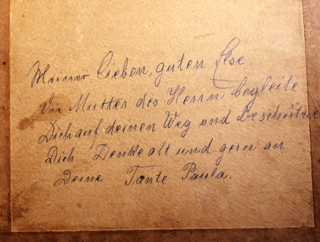 Meiner lieben, guten Else.
Die Mutter des Herrn begleite
Dich auf deinen Weg und beschütze
Dich Denke oft und gern an
Deine Tante Paula.